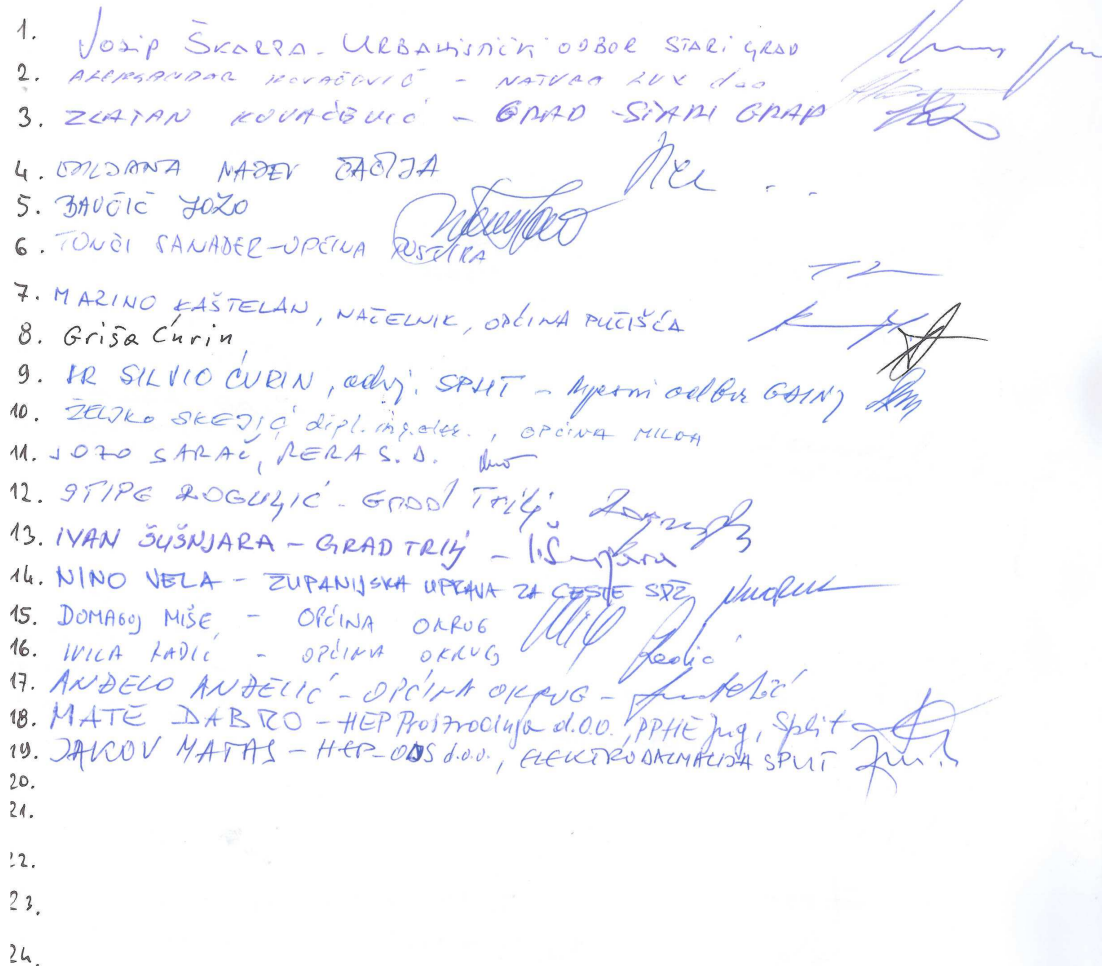 1. Josip Škarpa - Urbanistički odbor Stari Grad
2. ALEKSANDAR KOVAČEVIĆ - NATURA LUX doo
3. ZLATAN KOVAČEVIĆ - GRAD STARI GRAD
4. NADEV
5. BAUČIĆ JOŽO
6. TONČI SANADER-OPĆINA POSTIRA
7. MARINO KAŠTELAN, NAČELNIK, OPĆINA PUČIŠĆA
8. Griša Ćurin
9. DR SILVIO ĆURIN, odvj. SPLIT - Mjesni odbor GDINJ
10. ŽELJKO SKEJIĆ dipl.ing.elek., OPĆINA MILNA
11. JOZO SARAČ, RERA S.D.
12. STIPE ROGULJIĆ - GRAD Trilj
13. IVAN ŠUŠNJARA - GRAD TRILJ - IŠušnjara
14. NINO VELA - ŽUPANIJSKA UPRAVA ZA CESTE SDŽ
15. DOMAGOJ MIŠE - OPĆINA OKRUG
16. IVICA RADIĆ - OPĆINA OKRUG Radić
17. ANĐELO ANĐELIĆ - OPĆINA OKRUG - Anđelić
18. MATE DABRO - HEP Proizvodnja d.o.o., PPHE Jug, Split
19. JAKOV MATAS - HEP-ODS d.o.o., ELEKTRODALMACIJA SPLIT
20.
21.
22.
23.
24.